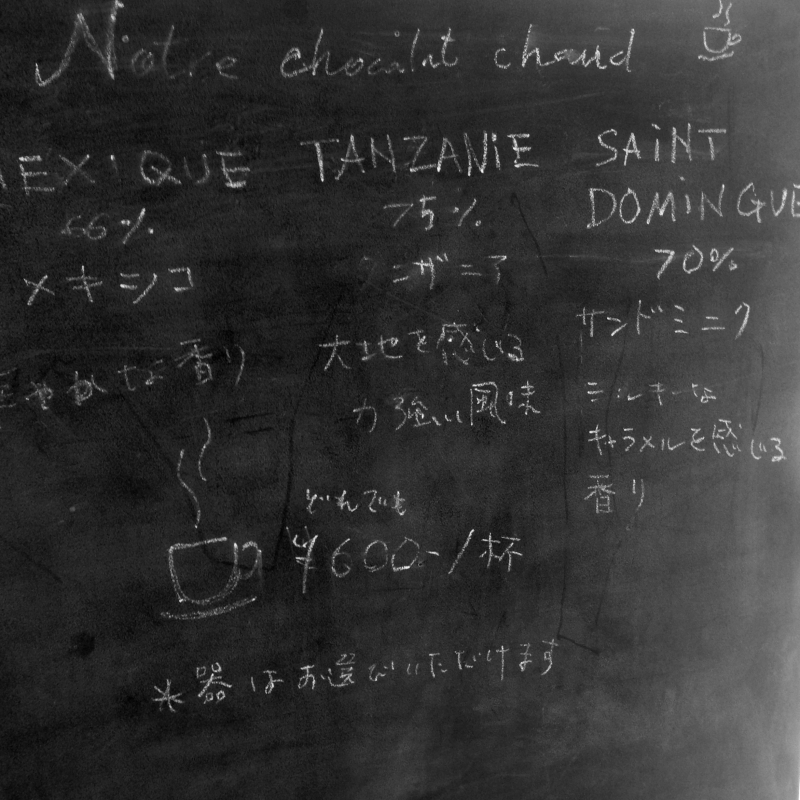 Notre chocolat chaud
MEXIQUE
66%
メキシコ
やかな香り
TANZANiE
75%
タンザニア
大地を感じる
力強い風味
SAiNT
DOMiNGUE
70%
サンドミニク
ミルキーな
キャラメルを感じる
香り
どれでも
¥600-/杯
※器はお選びいただけます